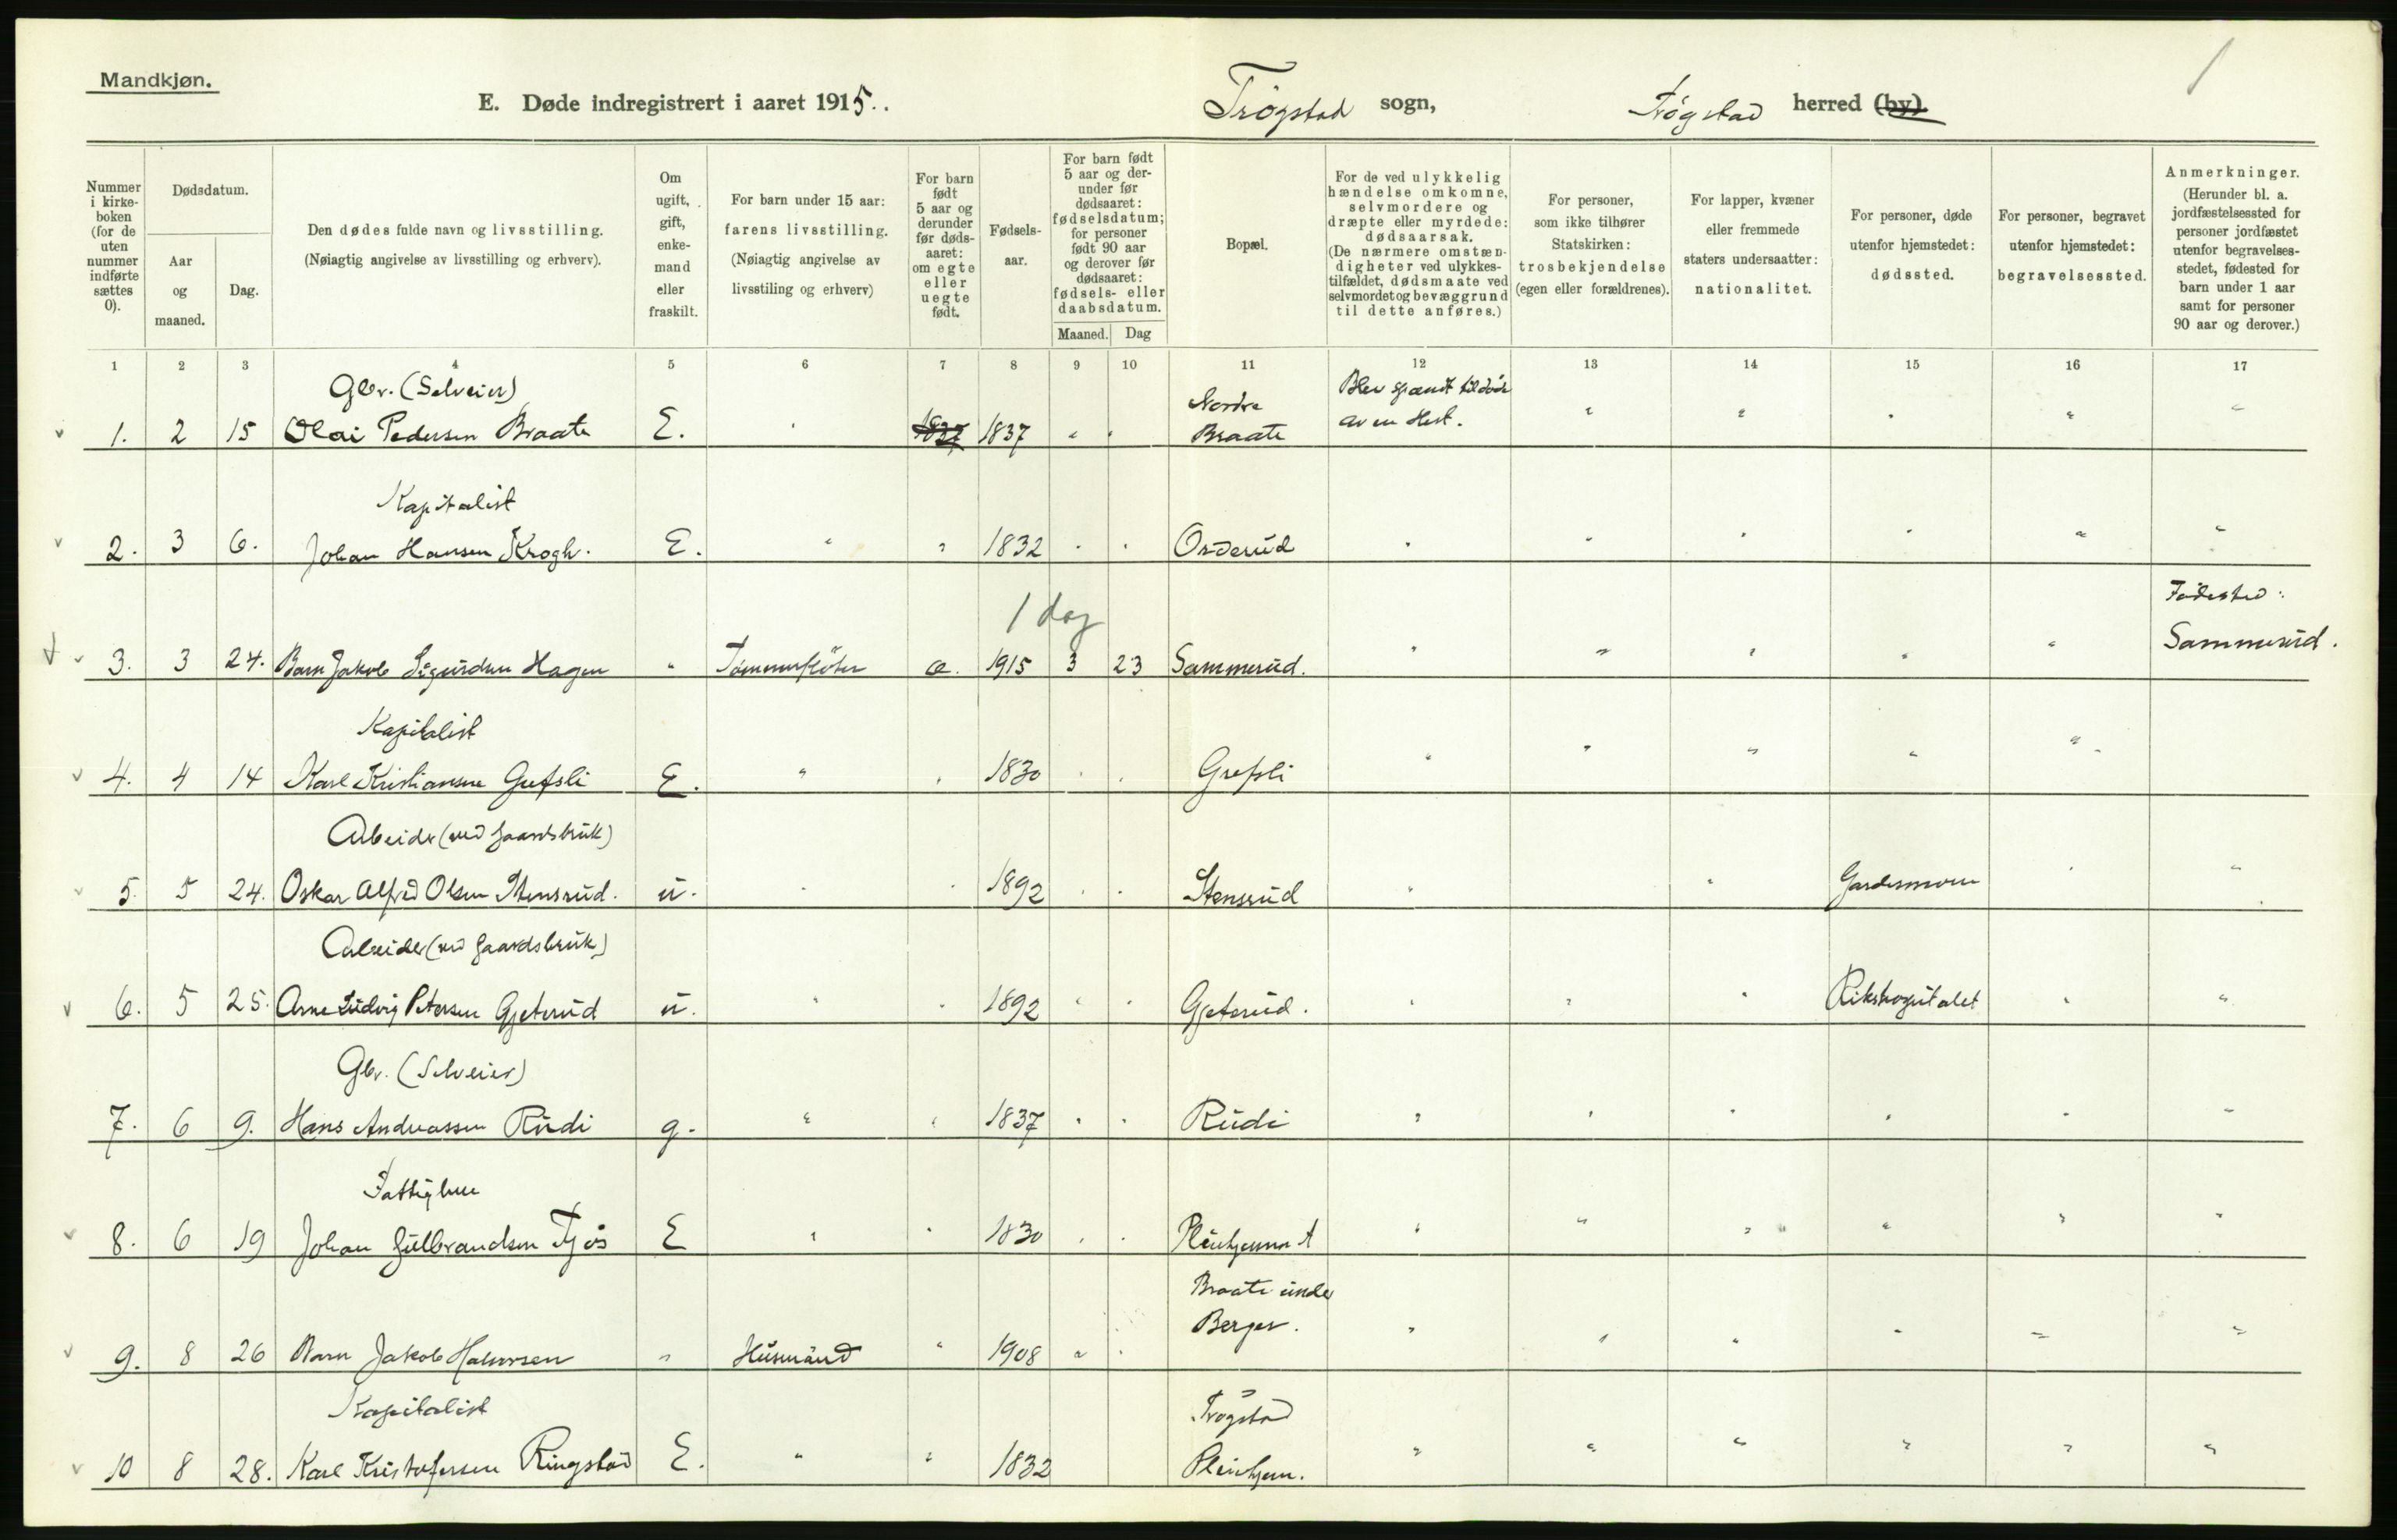 Mandkjøn.
E. Døde indregistrert i aaret 1915..
Trøgstad sogn, Trøgstad herred (by).
1
Nummer i kirkeboken (for de uten nummer indførte sættes 0).
Dødsdatum.
Aar og maaned.
Dag.
Den dødes fulde navn og livsstilling.
(Nøiagtig angivelse av livsstilling og erhverv).
Om ugift, gift, enkemand eller fraskilt.
For barn under 15 aar: farens livsstilling.
(Nøiagtig angivelse av livsstiling og erhverv)
For barn født 5 aar og derunder før dødsaaret: om egte eller uegte født.
Fødselsaar.
For barn født 5 aar og derunder før dødsaaret: fødselsdatum; for personer født 90 aar og derover før dødsaaret: fødsels- eller daabsdatum.
Maaned. Dag
Bopæl.
For de ved ulykkelig hændelse omkomne, selvmordere og dræpte eller myrdede: dødsaarsak.
(De nærmere omstændigheter ved ulykkestilfældet, dødsmaate ved selvmordet og bevæggrund til dette anføres.)
For personer, som ikke tilhører Statskirken: trosbekjendelse (egen eller forældrenes).
For lapper, kvæner eller fremmede staters undersaatter: nationalitet.
For personer, døde utenfor hjemstedet: dødssted.
For personer, begravet utenfor hjemstedet: begravelsessted.
Anmerkninger.
(Herunder bl. a. jordfæstelsessted for personer jordfæstet utenfor begravelsesstedet, fødested for barn under 1 aar samt for personer 90 aar og derover.)
1 2 3 4 5 6 7 8 9 10 11 12 13 14 15 16 17
Gbr. (Selveier) Nordre Blev spændt tildøde
1. 2 15 Olai Pedersen Braate E. " 1837 1837 " " Braate av en Hest. " " " " "
Kapitalist
2. 3 6. Johan Hansen Krogh. E. " " 1832 " " Orderud " " " " " "
1 dag Fødested:
3. 3 24. Barn Jakob Sigurdsen Hagen " Tømmerfløter e. 1915 3 23 Sammerud. " " " " " Sammerud.
Kapitalist
4. 4 14 Karl Kristiansen Grefsli E. " " 1830 " " Grefsli " " " " "
Arbeider (ved Gaardsbruk)
5. 5 24. Oskar Alfred Olsen Stensrud. u. " " 1892 " " Stensrud " " Gardermoen " "
Arbeider (ved Gaardsbruk)
6. 5 25. Arne Ludvig Petersen Gjeterud u. " " 1892 " " Gjeterud. " " " Rikshospitalet " "
Gbr. (Selveier)
7. 6 9. Hans Andreassen Rudi g. " " 1837 " " Rudi " " " " " "
Fattiglem
8. 6 19 Johan Gulbrandsen Fjøs E " " 1830 " " Pleiehjemmet " " " " " "
Braate under
Berger.
9. 8 26 Barn Jakob Halvorsen " Husmand " 1908 " " " " " " " "
Kapitalist Trøgstad
10 8 28. Karl Kristofersen Ringstad E. " " 1832 Pleiehjem. " " " " " "